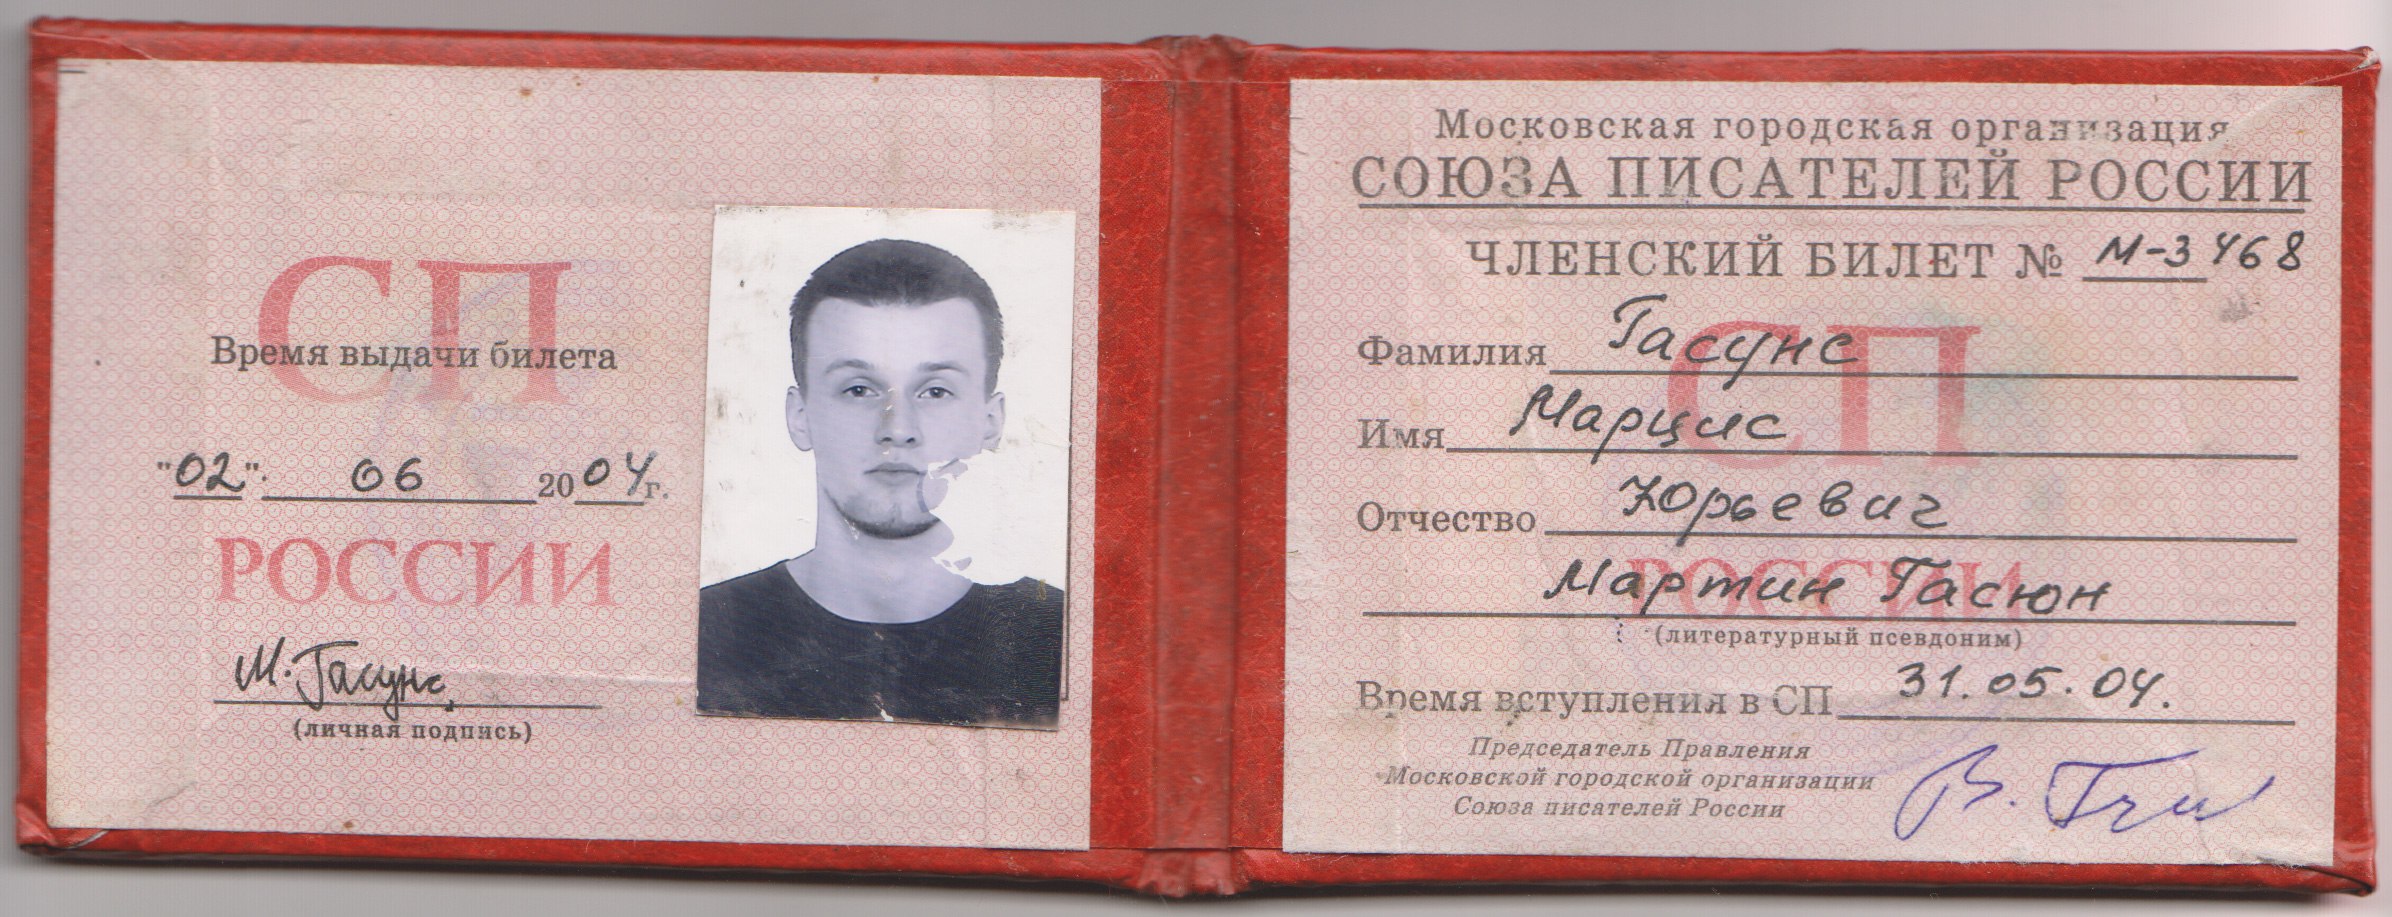 СП
Время выдачи билета
"02". 06 2004г.
РОССИИ
М. Гасунс
(личная подпись)
Московская городская организация
СОЮЗА ПИСАТЕЛЕЙ РОССИИ
ЧЛЕНСКИЙ БИЛЕТ № М-3468
СП
Фамилия Гасунс
Имя Марцис
Отчество Юрьевич
РОССИИ
Мартин Гасюн
(литературный псевдоним)
Время вступления в СП 31.05.04.
Председатель Правления
Московской городской организации
Союза писателей России